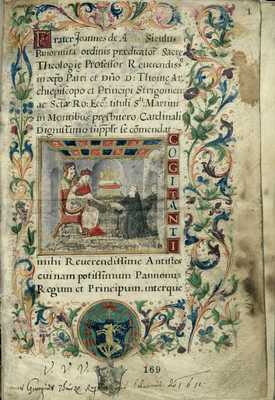 1
Frater Joannes de A Siculus
Panormita ordinis prædicator Sacre
Theologie Professor Reuerendiss
in xp̄o Patri et Dño D Thome Ar
chiepiscopo et Principi Strigonien
ac Sctæ Ro: Ecc tituli Sti Martini
in Montibus presbitero Cardinali
Dignissimo suppłr se cōmendat
COGITANTI
mihi Reuerendissime Antistes
cui nam potissimum Pannonię
Regum et Principum, interque
V V V
169